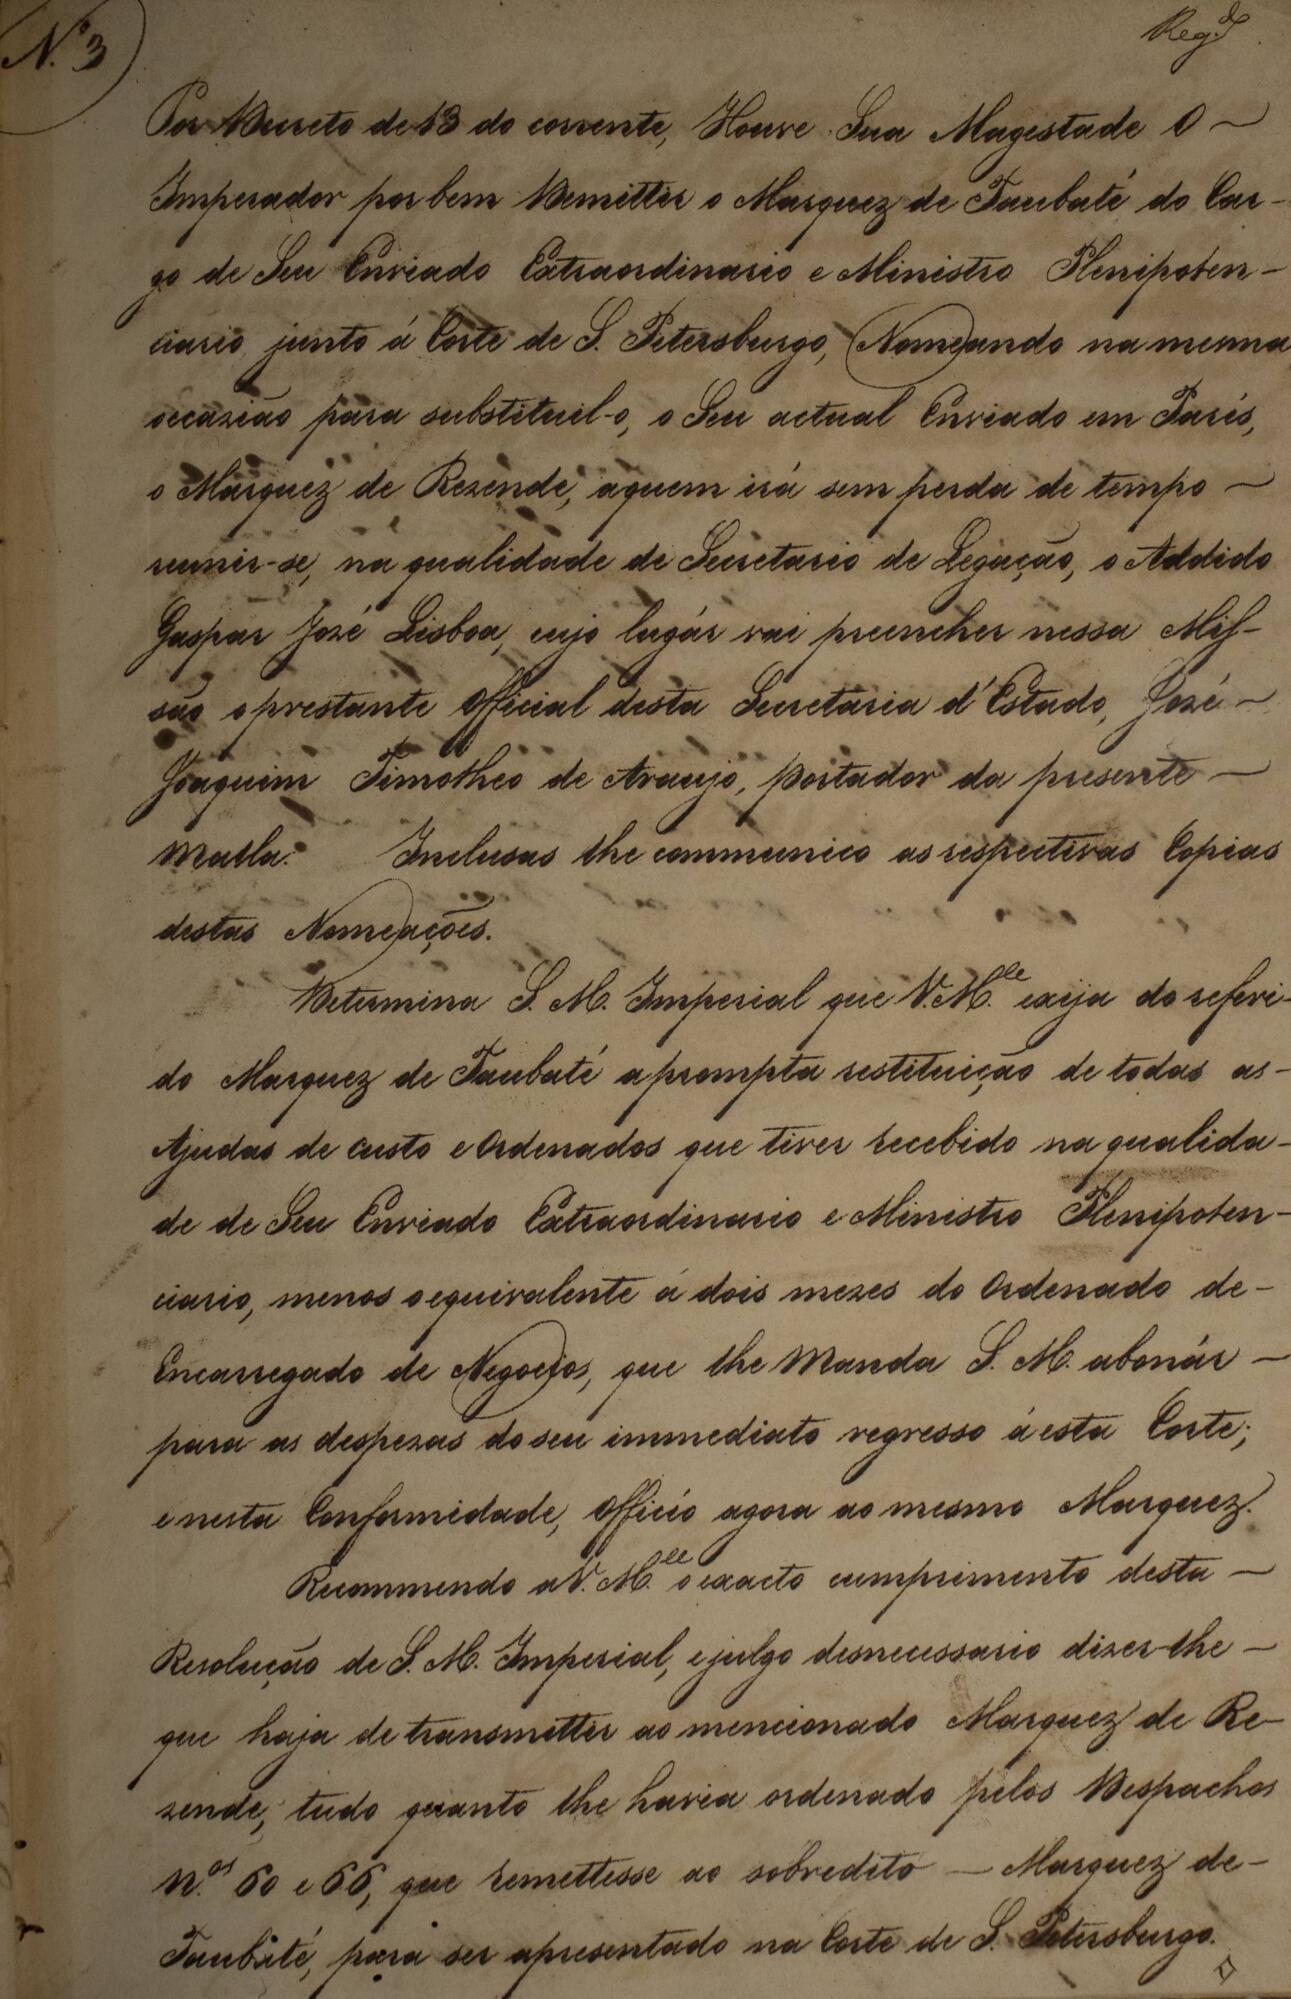 N.º 3
Reg.do
Por Decreto de 13 do corrente, Houve Sua Magestade O
Imperador por bem Demittir o Marquez de Taubaté do Car-
go de Seu Enviado Extraordinario e Ministro Plenipoten-
ciario junto á Corte de S. Petersburgo, Nomeando na mesma
occazião para substituil-o, o Seu actual Enviado em Paris,
o Marquez de Rezende, aquem irá sem perda de tempo
reunir-se, na qualidade de Secretario de Legação, o Addido
Gaspar José Lisboa, cujo lugár vai preencher nessa Mis-
são o prestante Official desta Secretaria d'Estado, José
Joaquim Timotheo de Araujo, portador da presente
Malla. Inclusas lhe communico as respectivas Copias
destas Nomeações.
Determina S. M. Imperial que V. M.ce exija do referi-
do Marquez de Taubaté a prompta restituição de todas as
Ajudas de custo e Ordenados que tiver recebido na qualida-
de de Seu Enviado Extraordinario e Ministro Plenipoten-
ciario, menos o equivalente á dois mezes do Ordenado de
Encarregado de Negocios, que lhe Manda S. M. abonár
para as despezas do seu immediato regresso á esta Corte;
e nesta Conformidade, Officio agora ao mesmo Marquez.
Recommendo a V. M.ce o exacto cumprimento desta
Resolução de S. M. Imperial, e julgo desnecessario dizer-lhe
que haja de transmittir ao mencionado Marquez de Re-
zende, tudo quanto lhe havia ordenado pelos Despachos
N.os 60 e 66, que remettesse ao sobredito — Marquez de
Taubaté, para ser apresentado na Corte de S. Petersburgo.